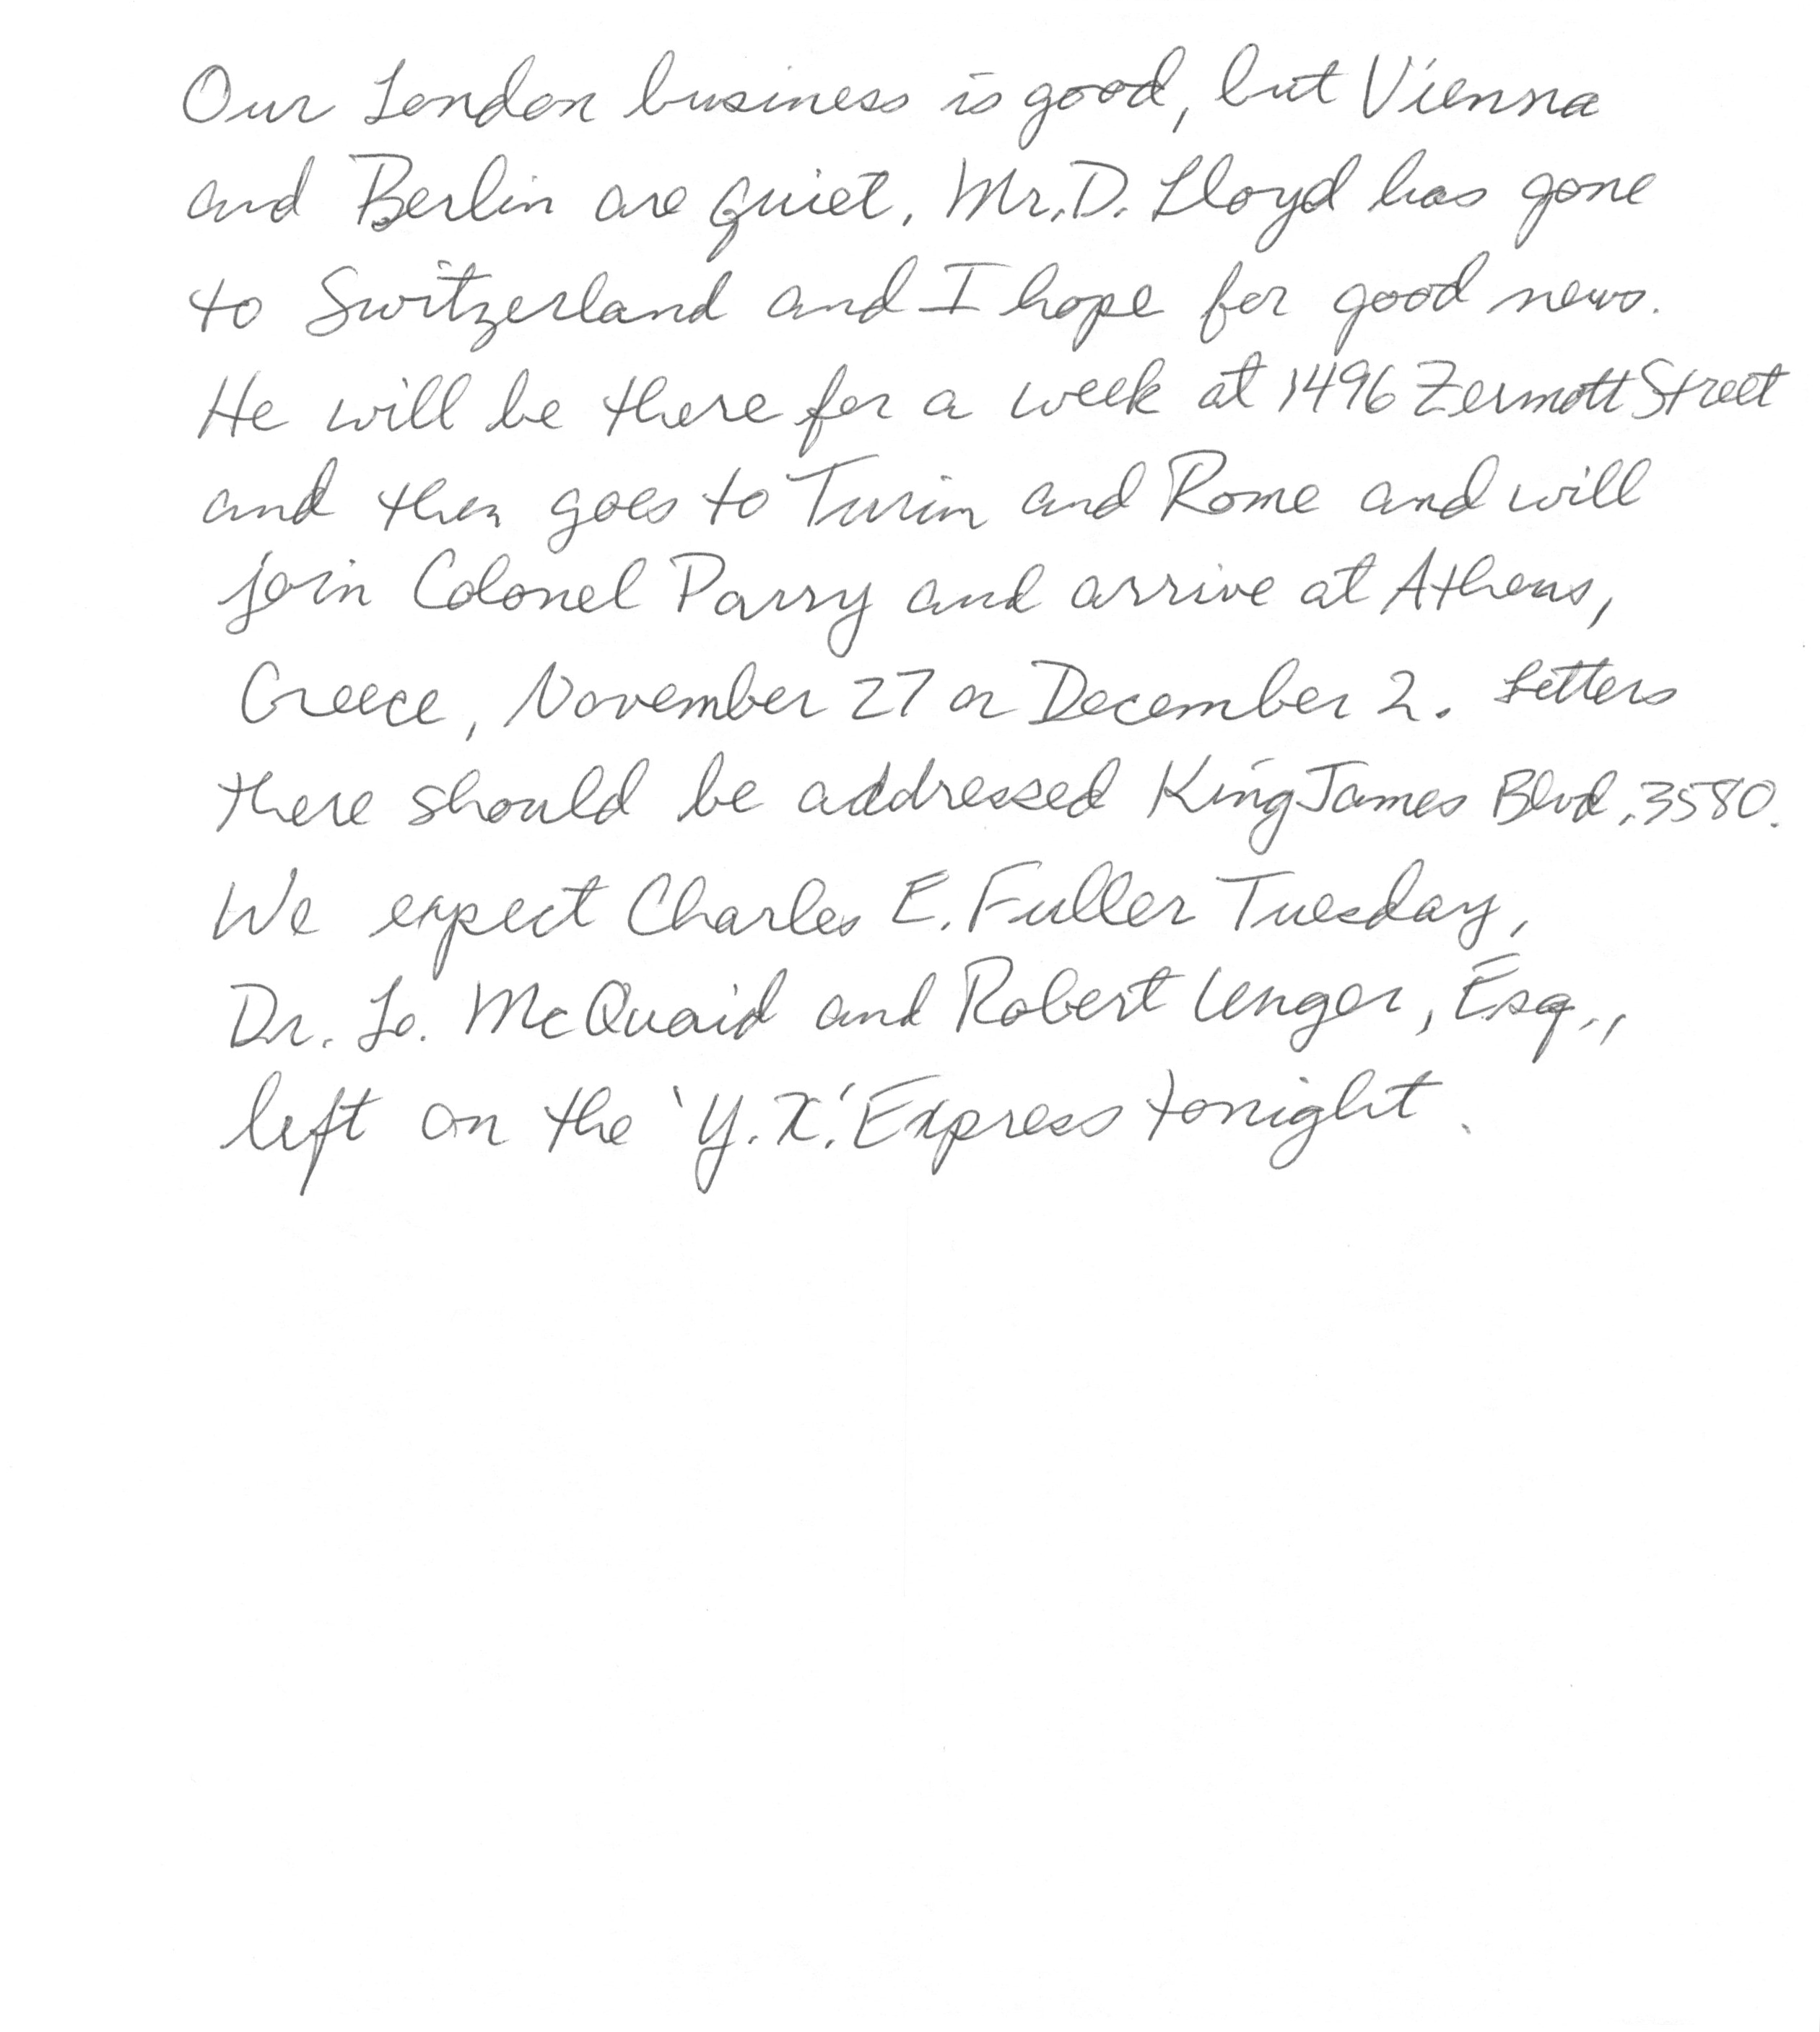 Our London business is good, but Vienna
and Berlin are quiet. Mr. D. Lloyd has gone
to Switzerland and I hope for good news.
He will be there for a week at 1496 Zermott Street
and then goes to Turin and Rome and will
join Colonel Parry and arrive at Athens,
Greece, November 27 or December 2. Letters
there should be addressed King James Blvd. 3580.
We expect Charles E. Fuller Tuesday,
Dr. L. McQuaid and Robert Unger, Esq.,
left on the 'Y.X.' Express tonight.